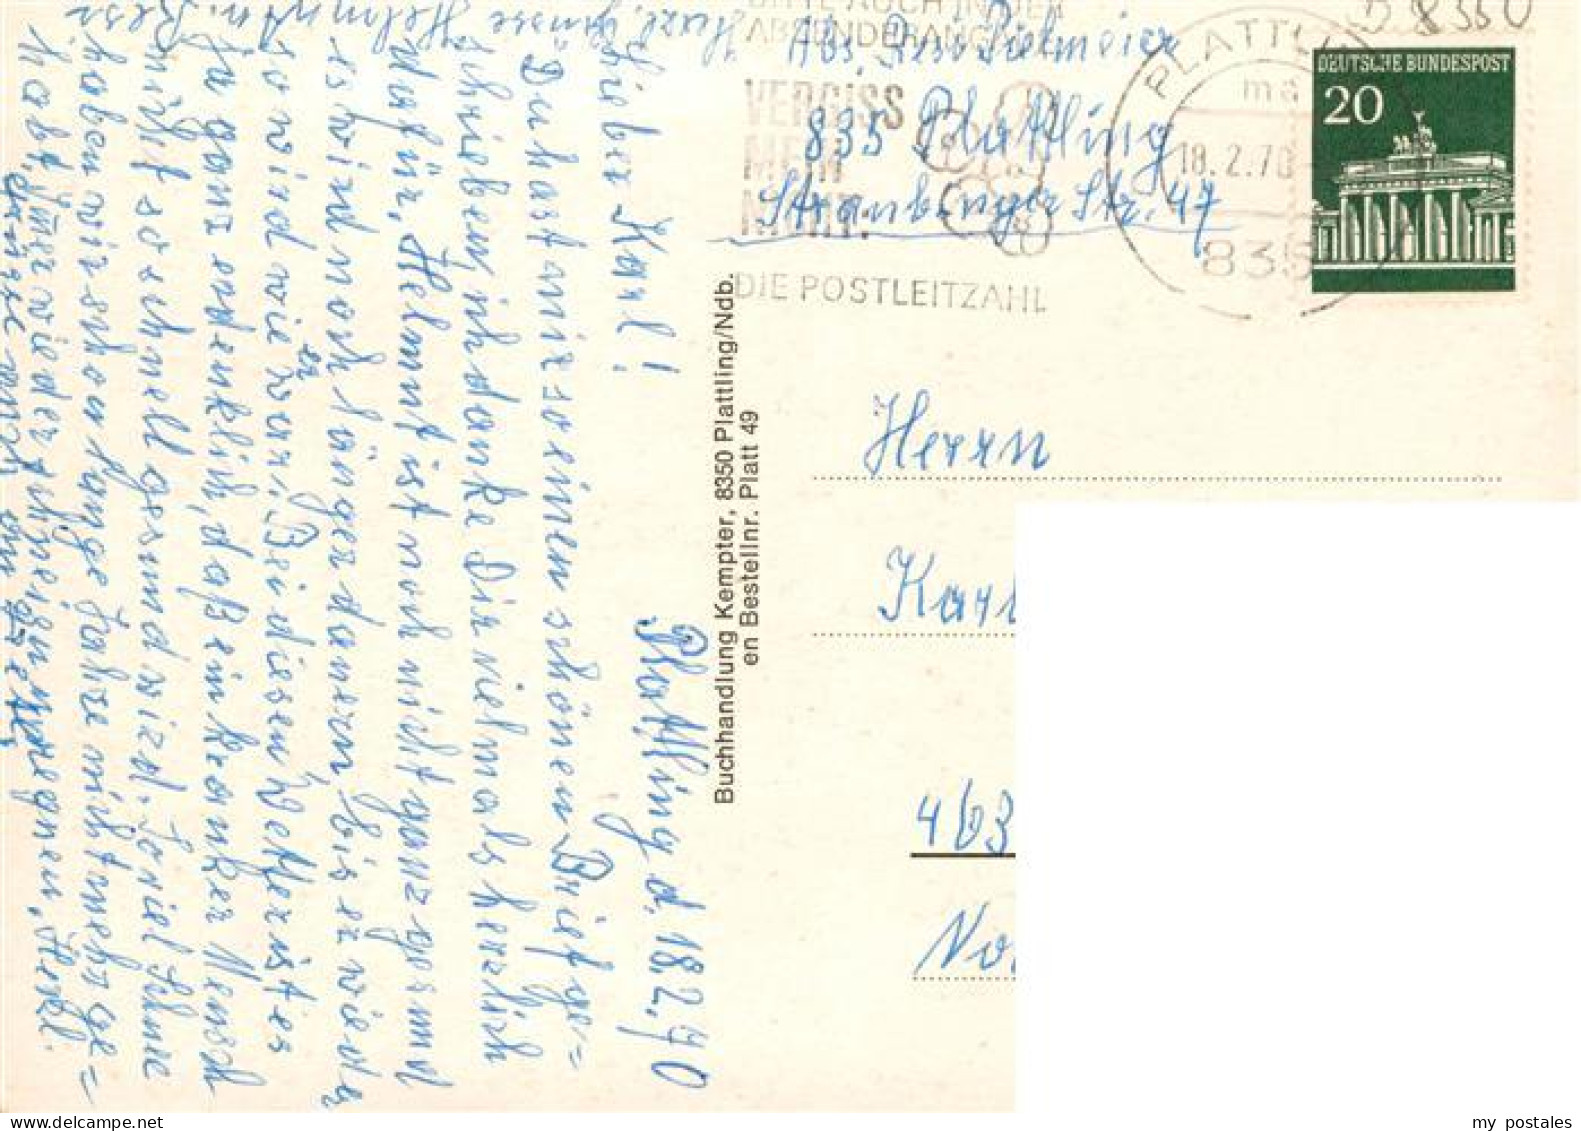 Plattling d. 18.2.70
Lieber Karl!
Du hast mir so einen schönen Brief ge=
schrieben, ich danke Dir vielmals herzlich
dafür, Helmut ist noch nicht ganz gesund
es wird noch länger dauern bis er wieder
so wird wie er war. Bei diesen Wetter ist es
ja ganz undenklich, daß ein kranker Mensch
nicht so schnell gesund wird. Soviel Schnee
haben wir schon lange Jahre nicht mehr ge=
habt, immer wieder
Herzl. Grüsse Helmut u. Resi
Buchhandlung Kempter, 8350 Plattling/Ndb.
en Bestellnr. Platt 49
BITTE AUCH IN DER
ABSENDERANGABE
VERGISS
MEIN
NICHT.
DIE POSTLEITZAHL
Abs. Resi
835 Plattling
Straubinger Str. 47
PLATTLING
18.2.70
835
B 8350
DEUTSCHE BUNDESPOST
20
Herrn
Karl
463
my postales